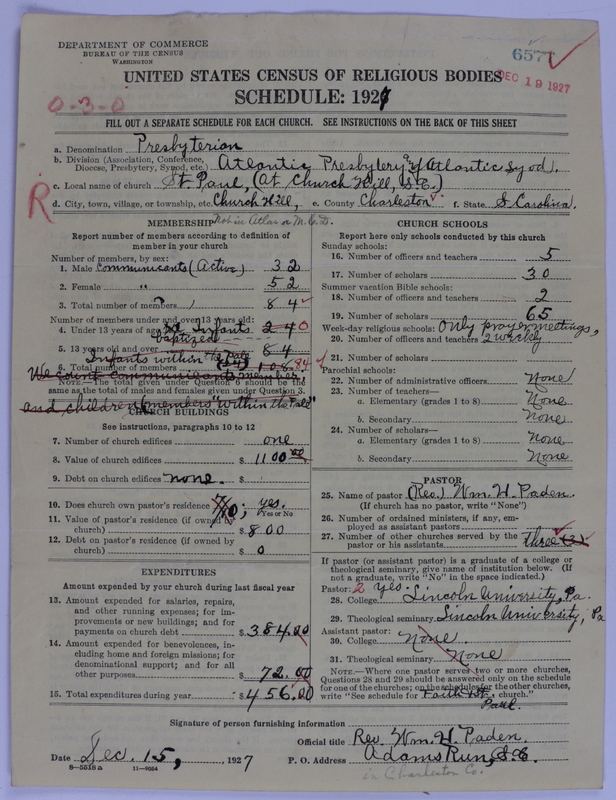 DEPARTMENT OF COMMERCE
BUREAU OF THE CENSUS
WASHINGTON
657
DEC 19 1927
UNITED STATES CENSUS OF RELIGIOUS BODIES
SCHEDULE: 1926
0-3-0
FILL OUT A SEPARATE SCHEDULE FOR EACH CHURCH. SEE INSTRUCTIONS ON THE BACK OF THIS SHEET
a. Denomination Presbyterian
b. Division (Association, Conference, Diocese, Presbytery, Synod, etc.) Atlantic Presbytery of Atlantic Synod.
c. Local name of church St. Paul, (At Church Hill, S.C.)
R
d. City, town, village, or township, etc. Church Hill, e. County Charleston f. State S. Carolina.
MEMBERSHIP Not in Atlas or M.&D.
Report number of members according to definition of member in your church
Number of members, by sex:
1. Male Communicants (Active) 32
2. Female " 52
3. Total number of members 84
Number of members under and over 13 years old:
4. Under 13 years of age Infants baptized 24 0
5. 13 years old and over 84
Infants within the Pale
6. Total number of members 108 84
We count communicants members
NOTE.—The total given under Question 6 should be the same as the total of males and females given under Question 3.
and children (members "within the Pale"
CHURCH BUILDINGS
See instructions, paragraphs 10 to 12
7. Number of church edifices one
8. Value of church edifices $ 1100.00
9. Debt on church edifices none. $
10. Does church own pastor's residence? No; yes.
Yes or No
11. Value of pastor's residence (if owned by church) $ 8.00
12. Debt on pastor's residence (if owned by church) $ 0
EXPENDITURES
Amount expended by your church during last fiscal year
13. Amount expended for salaries, repairs, and other running expenses; for improvements or new buildings; and for payments on church debt $ 384.00
14. Amount expended for benevolences, including home and foreign missions; for denominational support; and for all other purposes $ 72.00
15. Total expenditures during year $ 456.00
CHURCH SCHOOLS
Report here only schools conducted by this church
Sunday schools:
16. Number of officers and teachers 5
17. Number of scholars 30
Summer vacation Bible schools:
18. Number of officers and teachers 2
19. Number of scholars 65
Week-day religious schools: Only prayer meetings,
20. Number of officers and teachers 2 weekly
21. Number of scholars
Parochial schools:
22. Number of administrative officers None
23. Number of teachers—
a. Elementary (grades 1 to 8) None
b. Secondary None
24. Number of scholars—
a. Elementary (grades 1 to 8) None
b. Secondary None
PASTOR
25. Name of pastor (Rev.) Wm. H. Paden.
(If church has no pastor, write "None")
26. Number of ordained ministers, if any, employed as assistant pastors
27. Number of other churches served by the pastor or his assistants three (3)
If pastor (or assistant pastor) is a graduate of a college or theological seminary, give name of institution below. (If not a graduate, write "No" in the space indicated.)
Pastor: 2 yes.
28. College Lincoln University, Pa.
29. Theological seminary Lincoln University, Pa
Assistant pastor:
30. College None.
31. Theological seminary None
NOTE.—Where one pastor serves two or more churches, Questions 28 and 29 should be answered only on the schedule for one of the churches; on the schedules for the other churches, write "See schedule for church."
Paul.
Signature of person furnishing information
Official title Rev. Wm. H. Paden.
Date Dec. 15, 1927 P. O. Address Adams Run, S.C.
8—5518 a 11—9054
in Charleston Co.